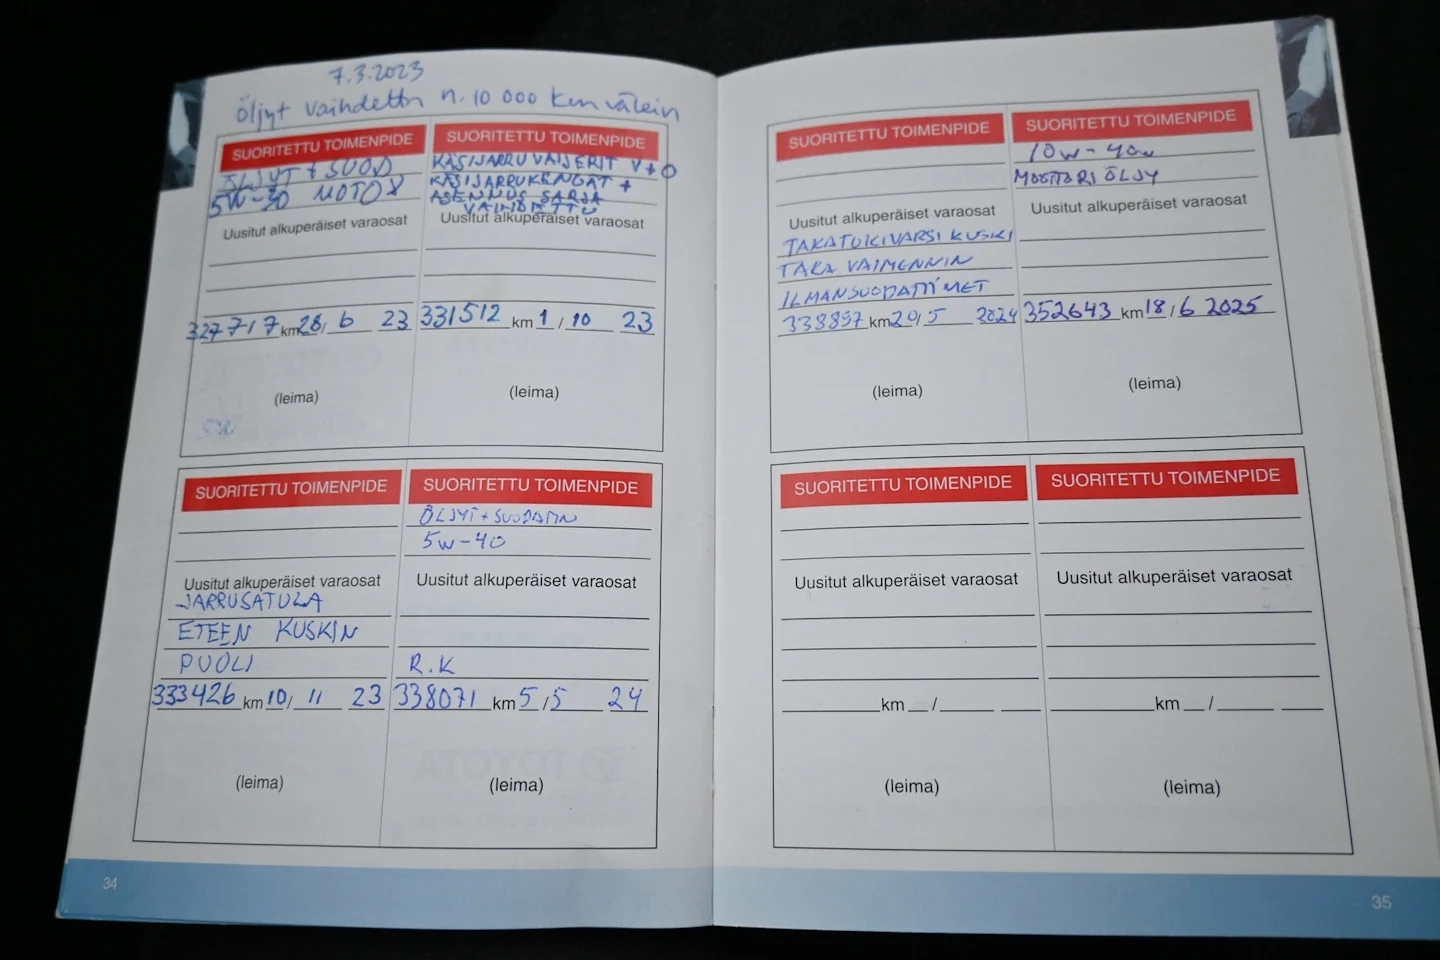 7.3.2023
öljyt vaihdettu n. 10 000 km välein
SUORITETTU TOIMENPIDE
ÖLJYT + SUOD
5W-30 MOTOX
Uusitut alkuperäiset varaosat
327717 km 28/6 23
(leima)
5W
SUORITETTU TOIMENPIDE
KÄSIJARRUVAIJERIT V+O
KÄSIJARRUKENGÄT +
ASENNUS SARJA
VAIHDETTU
Uusitut alkuperäiset varaosat
331512 km 1/10 23
(leima)
SUORITETTU TOIMENPIDE
Uusitut alkuperäiset varaosat
JARRUSATULA
ETEEN KUSKIN
PUOLI
333426 km 10/11 23
(leima)
SUORITETTU TOIMENPIDE
ÖLJYT + SUODATIN
5W-40
Uusitut alkuperäiset varaosat
R.K
338071 km 5/5 24
(leima)
TOYOTA
34
SUORITETTU TOIMENPIDE
Uusitut alkuperäiset varaosat
TAKATUKIVARSI KUSKI
TAKA VAIMENNIN
ILMANSUODATTIMET
338897 km 20/5 2024
(leima)
SUORITETTU TOIMENPIDE
10w-40w
MOOTTORIÖLJY
Uusitut alkuperäiset varaosat
352643 km 18/6 2025
(leima)
SUORITETTU TOIMENPIDE
Uusitut alkuperäiset varaosat
km /
(leima)
SUORITETTU TOIMENPIDE
Uusitut alkuperäiset varaosat
km /
(leima)
35